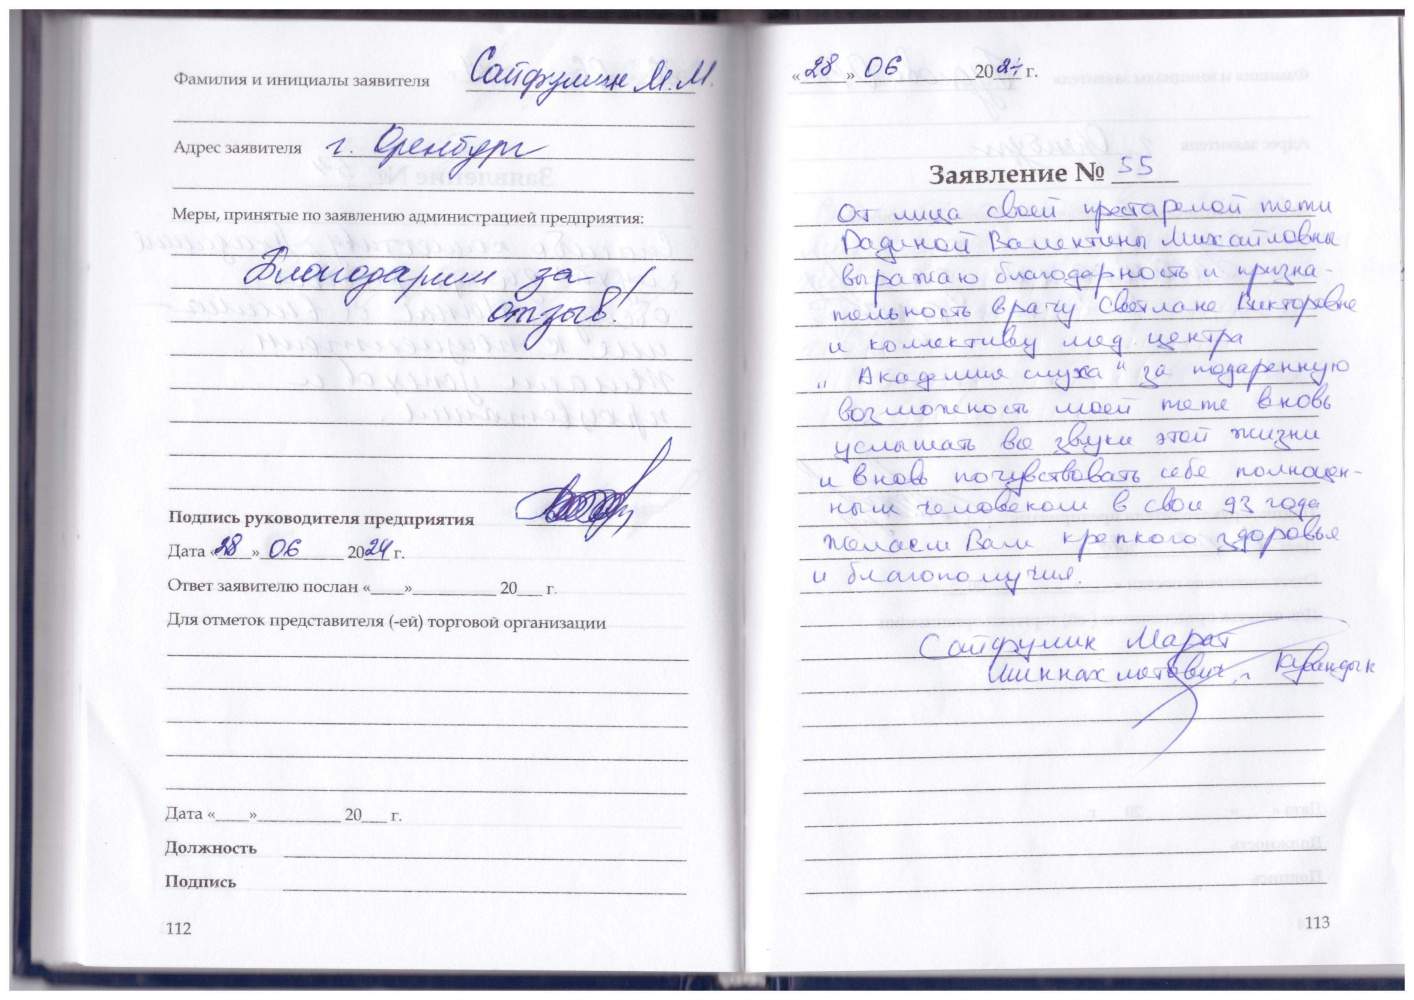 Фамилия и инициалы заявителя Сайфулин М.М.
Адрес заявителя г. Оренбург
Меры, принятые по заявлению администрацией предприятия:
Благодарим за
отзыв!
Подпись руководителя предприятия
Дата «28» 06 2024 г.
Ответ заявителю послан «____»__________ 20___ г.
Для отметок представителя (-ей) торговой организации
Дата «____»__________ 20___ г.
Должность
Подпись
112
«28» 06 2024 г.
Заявление № 55
От лица своей престарелой тети
Валентины Михайловны
выражаю благодарность и призна-
тельность врачу Светлане Викторовне
и коллективу мед. центра
„Академия слуха“ за подаренную
возможность моей тете вновь
услышать все звуки этой жизни
и вновь почувствовать себе полноцен-
ным человеком в свои 93 года
Желаем Вам крепкого здоровья
и благополучия.
Сайфулин Марат
г. Кувандык
113